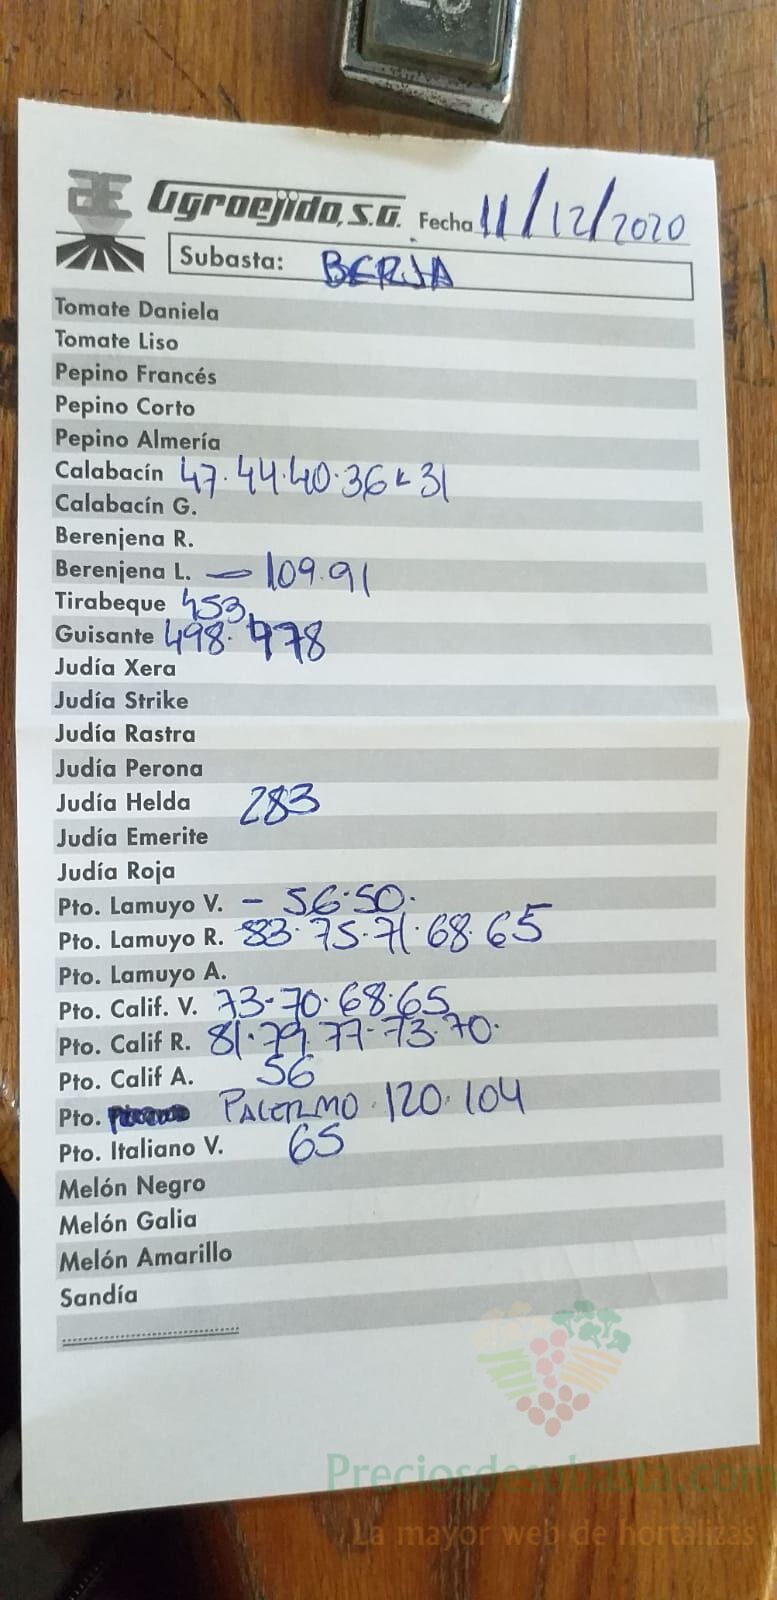 Agroejido, S.A. Fecha 11/12/2020
Subasta: BERJA
Tomate Daniela
Tomate Liso
Pepino Francés
Pepino Corto
Pepino Almería
Calabacín 47.44.40.36 31
Calabacín G.
Berenjena R.
Berenjena L. — 109.91
Tirabeque 453
Guisante 498. 478
Judía Xera
Judía Strike
Judía Rastra
Judía Perona
Judía Helda 283
Judía Emerite
Judía Roja
Pto. Lamuyo V. - 56.50.
Pto. Lamuyo R. 83.75.71.68.65
Pto. Lamuyo A.
Pto. Calif. V. 73-70.68.65
Pto. Calif R. 81.79.77-73.70.
Pto. Calif A. 56
Pto. PALERMO.120.104
Pto. Italiano V. 65
Melón Negro
Melón Galia
Melón Amarillo
Sandía
Preciosdesubasta.com
La mayor web de hortalizas